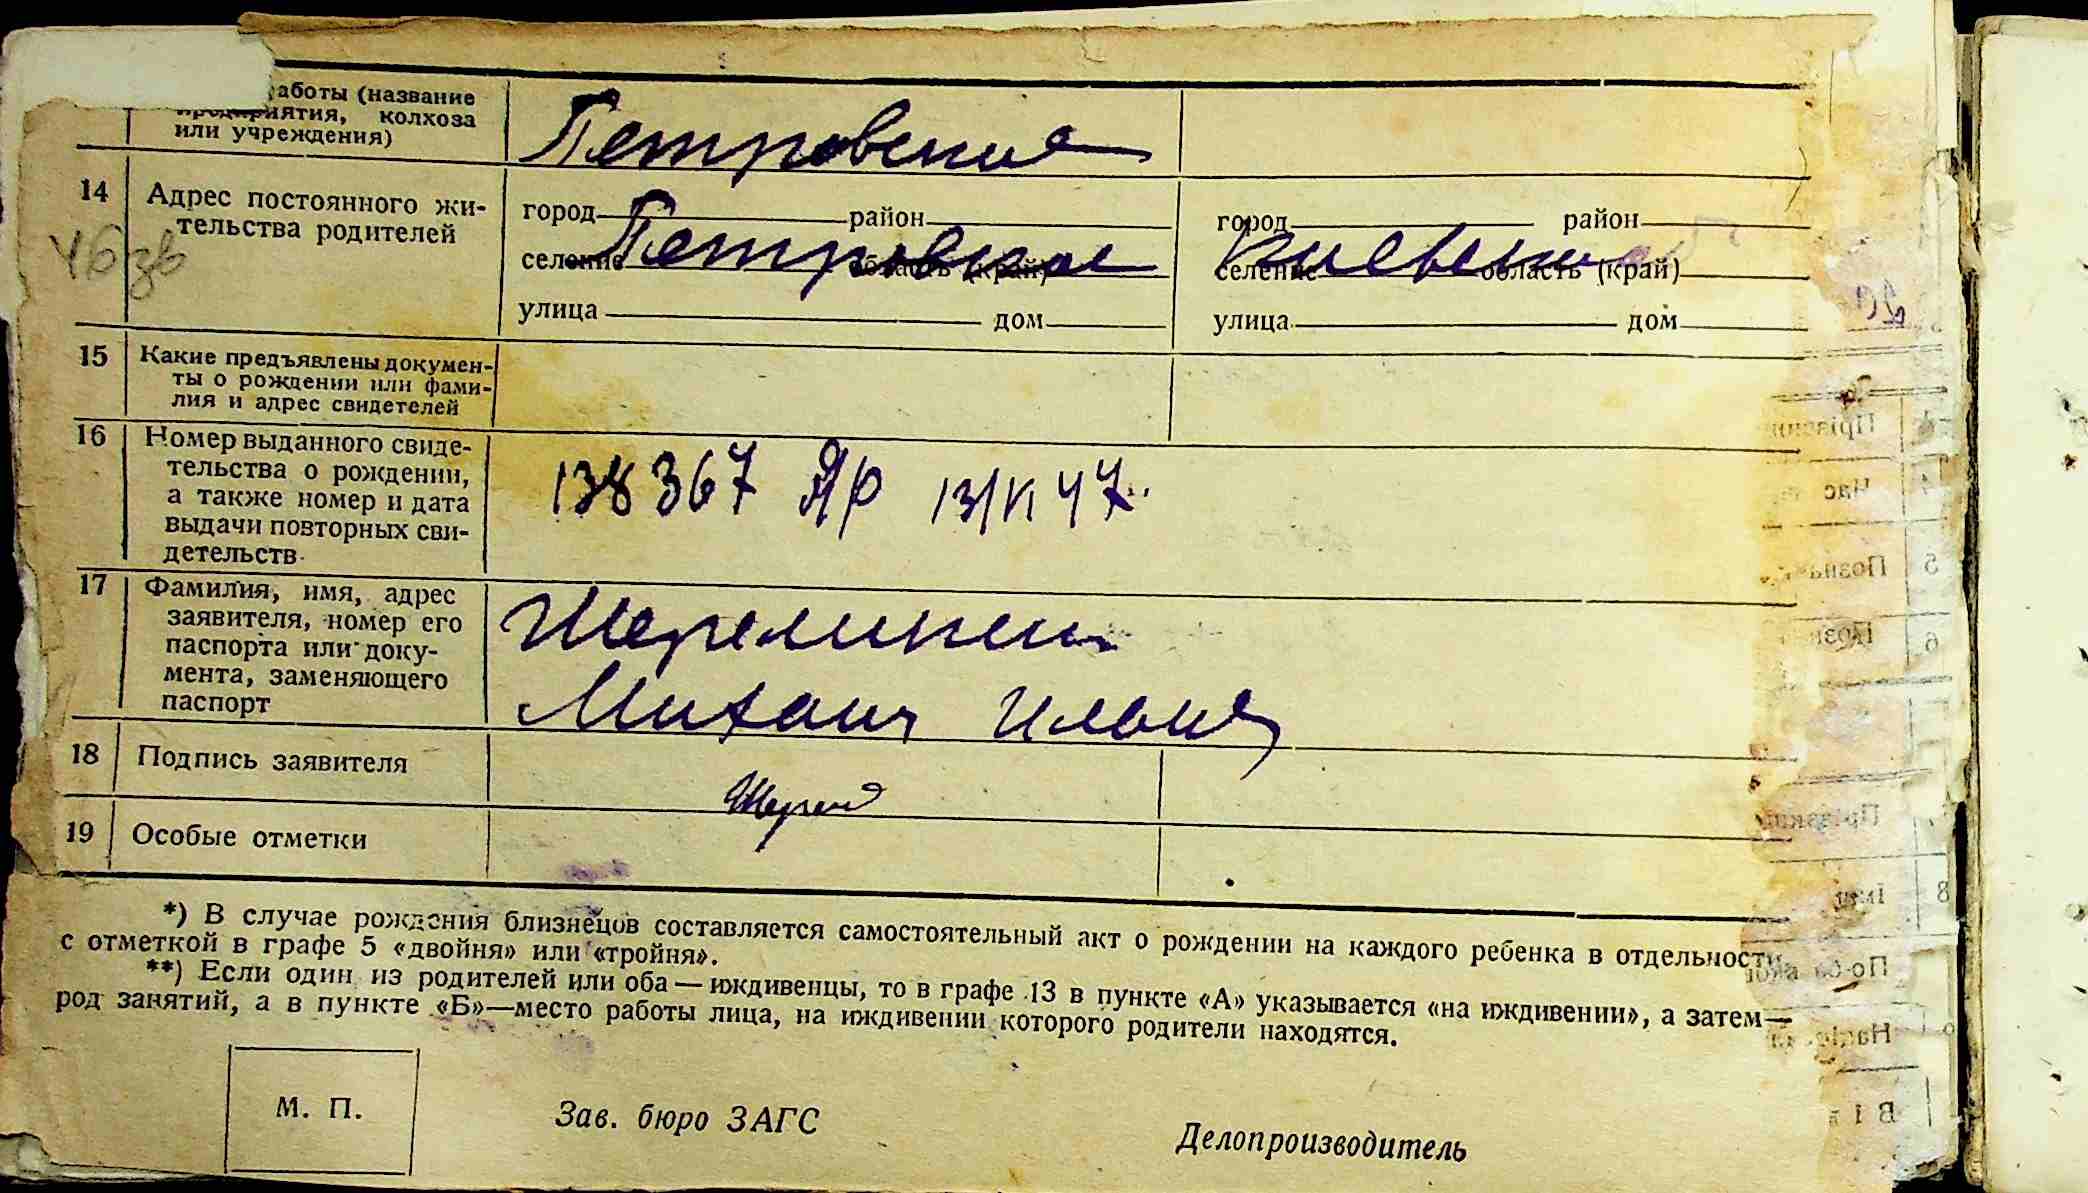 аботы (название
предприятия, колхоза
или учреждения)
Петровское
14 Адрес постоянного жи-
тельства родителей
город район
селение Петровское область (край)
улица дом
город район
селение Киевск область (край)
улица дом
15 Какие предъявлены докумен-
ты о рождении или фами-
лия и адрес свидетелей
16 Номер выданного свиде-
тельства о рождении,
а также номер и дата
выдачи повторных сви-
детельств
138367 ЯР 13/VI 47
17 Фамилия, имя, адрес
заявителя, номер его
паспорта или доку-
мента, заменяющего
паспорт
Михаил Ильич
18 Подпись заявителя
19 Особые отметки
*) В случае рождения близнецов составляется самостоятельный акт о рождении на каждого ребенка в отдельности
с отметкой в графе 5 «двойня» или «тройня».
**) Если один из родителей или оба — иждивенцы, то в графе 13 в пункте «А» указывается «на иждивении», а затем—
род занятий, а в пункте «Б»—место работы лица, на иждивении которого родители находятся.
М. П.
Зав. бюро ЗАГС
Делопроизводитель